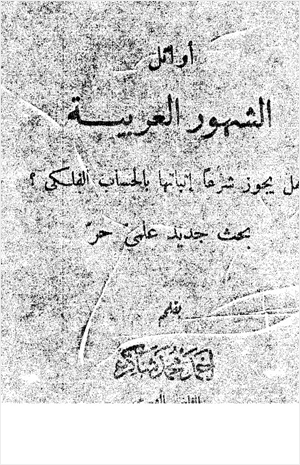 أوائل
الشهور العربية
هل يجوز شرعاً إثباتها بالحساب الفلكي ؟
بحث جديد علمي حرّ
بقلم
أحمد محمد شاكر
القاضي الشرعي